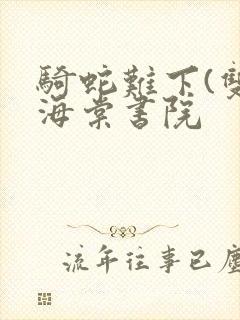 騎蛇難下(雙
海棠書院
流年往事已塵